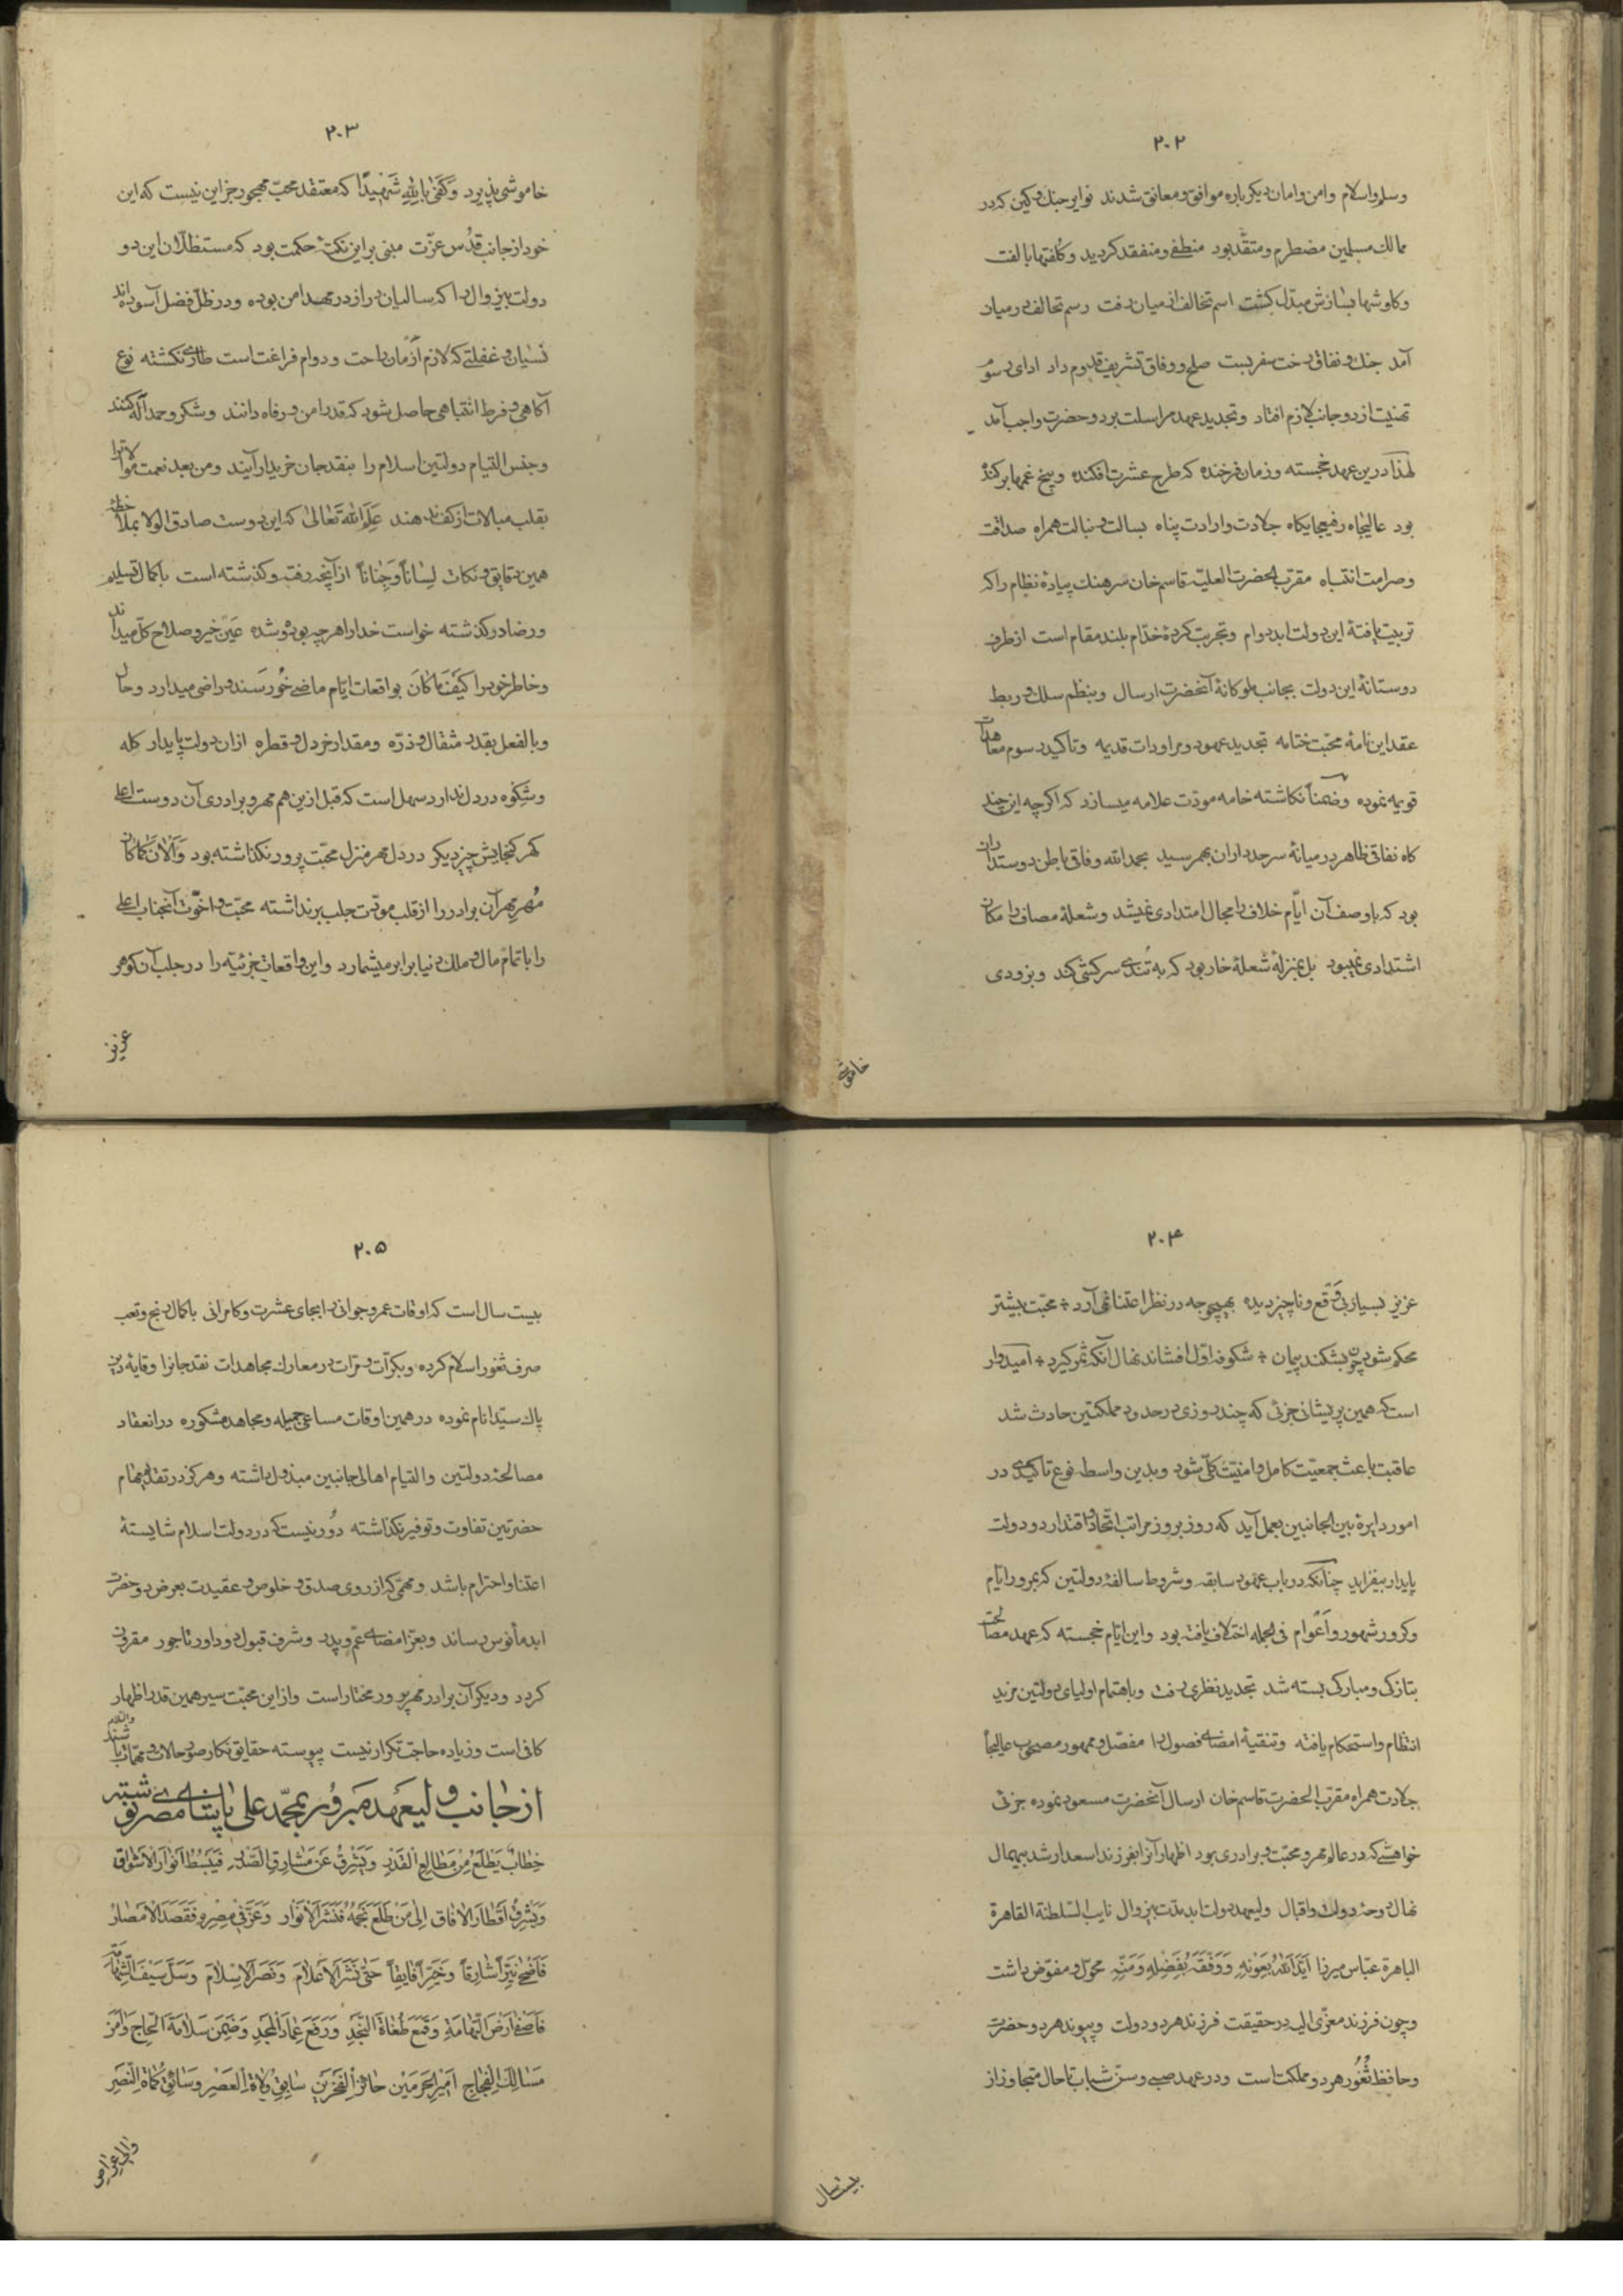 ۲۰۲
وسلم و اسلام و امن و امان دیکر باره موافق و معانق شدند نوایر جنك و کین که در
ممالك مسلمین مضطرم و متقد بود منطفی و منفقد کردید و کلفتها بالفت
و کاوشها بسازش مبدل کشت اسم تخالف از میان رفت رسم تحالف در میان
آمد جنك و نفاق رخت سفر بست صلح و وفاق تشریف قدوم داد ادای رسوم
تهنیت از دو جانب لازم افتاد و تجدید عهد مراسلت بر دو حضرت واجب آمد
لهذا درین عهد خجسته و زمان فرخنده که طرح عشرت افکنده و بیخ غمها برکنده
بود عالیجاه رفیعجایکاه جلادت و ارادت پناه بسالت و نبالت همراه صداقت
و صرامت انتباه مقرب الحضرت العلیه قاسم خان سرهنك پیادهٔ نظام را که
تربیت یافتهٔ این دولت ابد دوام و تجربت کردهٔ خدام بلند مقام است از طرف
دوستانهٔ این دولت بجانب ملوکانهٔ آنحضرت ارسال و بنظم سلك و ربط
عقد این نامهٔ محبت ختامه تجدید عهود و مراودات قدیمه و تاکید رسوم معاهدات
قویمه نموده و ضمناً نکاشته خامه مودت علامه میسازد که اکرچه این چند
کاه نفاقی ظاهر در میانهٔ سرحدداران بهمرسید بحمدالله وفاق باطن دوستداران
بود که باوصف آن ایام خلاف را مجال امتدادی نمیشد و شعلهٔ مصاف را مکان
اشتدادی نمیبود بل بمنزلهٔ شعلهٔ خار بود که به تندی سرکشی کند و بزودی
خاموشی
۲۰۳
خاموشی پذیرد وَکَفیٰ بِاللهِ شَهیداً که معتقد محب مهجور جز این نیست که این
خود از جانب قدس عزت مبنی بر این نکتهٔ حکمت بود که مستظلان این دو
دولت بیزوال را که سالیان دراز در مهد امن بوده و در ظل فضل آسوده‌اند
نسیان و غفلتی که لازم ازمان راحت و دوام فراغت است طاری نکشته نوع
آکاهی و فرط انتباهی حاصل شود که قدر امن و رفاه دانند و شکر و حمد آله کنند
و جنس التیام دولتین اسلام را بنقد جان خریدار آیند و من بعد نعمت موالات را
بقلب مبالات از کف ندهند عَلِمَ اللهُ تَعَالیٰ که این دوست صادق الولا بملاحظهٔ
همین دقایق و نکات لِساناً وَ جِناناً از آنچه رفته و کذشته است باکمال تسلیم
و رضا در کذشته خواست خدا را هرچه بوده و شده عین خیر و صلاح کل میداند
و خاطر خود را کَیْفَ ماکانَ بواقعات ایام ماضی خورسند و راضی میدارد و حال
و بالفعل بقدر مثقال و ذره و مقدار خردل و قطره از ان دولت پایدار کله
و شکوه در دل ندارد سهل است که قبل ازین هم مهر و برادری آن دوست اعلی
کهر کنجایش چیز دیکر در دل مهر منزل محبت پرور نکذاشته بود وَ اْلآن کَماکانَ
مُهر مِهر آن برادر را از قلب مودت جلب برنداشته محبت و اخوت آنجناب اعلی
را با تمام مال و ملك دنیا برابر میشمارد و این واقعات جزئیه را در جلب آن کوهر
عزیز
۲۰۴
عزیز بسیار بی وقع و ناچیز دیده بهیچوجه در نظر اعتنا نمی آرد ÷ محبت بیشتر
محکم شود چون بشکند پیمان ÷ شکوفه اول افشاند نهال آنکه ثمر کیرد ÷ امیدوار
است که همین پریشانی جزئی که چند روزی در حدود مملکتین حادث شد
عاقبت باعث جمعیت کامل و امنیت کلی شود و بدین واسطه نوع تاکیدی در
امور دایرهٔ بین الجانبین بعمل آید که روز بروز مراتب اتحاد و اقتدار دو دولت
پایدار بیفزاید چنانکه در باب عهود سابقه و شروط سالفهٔ دولتین که بمرور ایام
و کرور شهور و اعوام فی الجمله اختلاف یافته بود و این ایام خجسته که عهد مصالحت
بتازکی و مبارکی بسته شد تجدید نظری رفت و باهتمام اولیای دولتین مزید
انتظام و استحکام یافته و تنقیهٔ امضای فصول را مفصل و ممهور مصحوب عالیجاه
جلادت همراه مقرب الحضرت قاسم خان ارسال آنحضرت مسعود نموده جزئی
خواهشی که در عالم مهر و محبت و برادری بود اظهار آنرا بفرزند اسعد ارشد بیهمال
نهال دوحهٔ دولت و اقبال ولیعهد دولت ابد مدت بیزوال نایب السلطنة القاهرة
الباهرة عباس میرزا اَیَّدَهُ اللهُ بِعَوْنِهِ وَ وَفَّقَهُ بِفَضْلِهِ وَ مَنِّهِ محول و مفوض داشت
و چون فرزند معزی الیه در حقیقت فرزند هر دو دولت و پیوند هر دو حضرت
و حافظ ثغور هر دو مملکت است و در عهد صبی و سن شباب تا حال متجاوز از
بیست سال
۲۰۵
بیست سال است که اوقات عمر و جوانی را بجای عشرت و کامرانی باکمال رنج و تعب
صرف ثغور اسلام کرده و بکرّات و مرّات در معارك مجاهدات نقد جانرا وقایهٔ دین
پاك سید انام نموده در همین اوقات مساعی جمیله و مجاهد مشکوره در انعقاد
مصالحهٔ دولتین و التیام اهالی جانبین مبذول داشته و هرکز در تقدیم مهام
حضرتین تفاوت و توفیر نکذاشته دور نیست که در دولت اسلام شایستهٔ
اعتنا و احترام باشد و مهمی که از روی صدق و خلوص و عقیدت بعرض دو حضرت
ابد مأنوس رساند و بعز امضای عم و پدر و شرف قبول دو داور تاجور مقرون
کردد و دیکر آن برادر مهرپرور مختار است و از این محبت سیر همین قدر اظهار
کافی است و زیاده حاجت تکرار نیست پیوسته حقایق نکار صور حالات و مهمات باشند والسلام
از جانب ولیعهد مبرور بمحمد علی پاشای مصر نوشته
خِطابٌ یَطْلَعُ مِنْ مَطالِعِ الْقَدْرِ وَ یَشْرِقُ عَنْ مَشارِقِ الصَّدْرِ فَیَبْسُطُ اَنْوارَ الاَشْواقِ
وَ یُشْرِفُ اَقْطارَ الآفاقِ اِلیٰ مَنْ طَلَعَ نَجْمُهُ فَنَشَرَ الاَنْوارَ وَ عَزَّ فی مِصْرِهِ فَقَصَدَ الاَمْصارَ
فَاَضْحیٰ نَیِّراً شارِقاً وَ خَیِّراً فایِقاً حَتّیٰ نَشَرَ الاَعْلامَ وَ نَصَرَ الاِسْلامَ وَ سَلَّ سَیْفَ الشَّهامَةِ
فَاَصْفیٰ اَرْضَ التِّهامَةِ وَ قَمَعَ طُغاةَ النَّجْدِ وَ رَفَعَ عِمادَ الْمَجْدِ وَ ضَمِنَ سَلامَةَ الْحاجِ وَ اَمْنَ
مَسالِكِ الْفِجاجِ اَمیرُ الْحَرَمَیْنِ حائِزُ الْفَخْرَیْنِ سابِقُ وُلاةِ الْعَصْرِ وَ سائِقُ کُماةِ النَّصْرِ